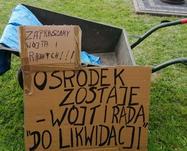 ZAPRASZAMY
WÓJTA I
RADNYCH!!!
OŚRODEK
ZOSTAJE
- WÓJT I RADA
"DO LIKWIDACJI"